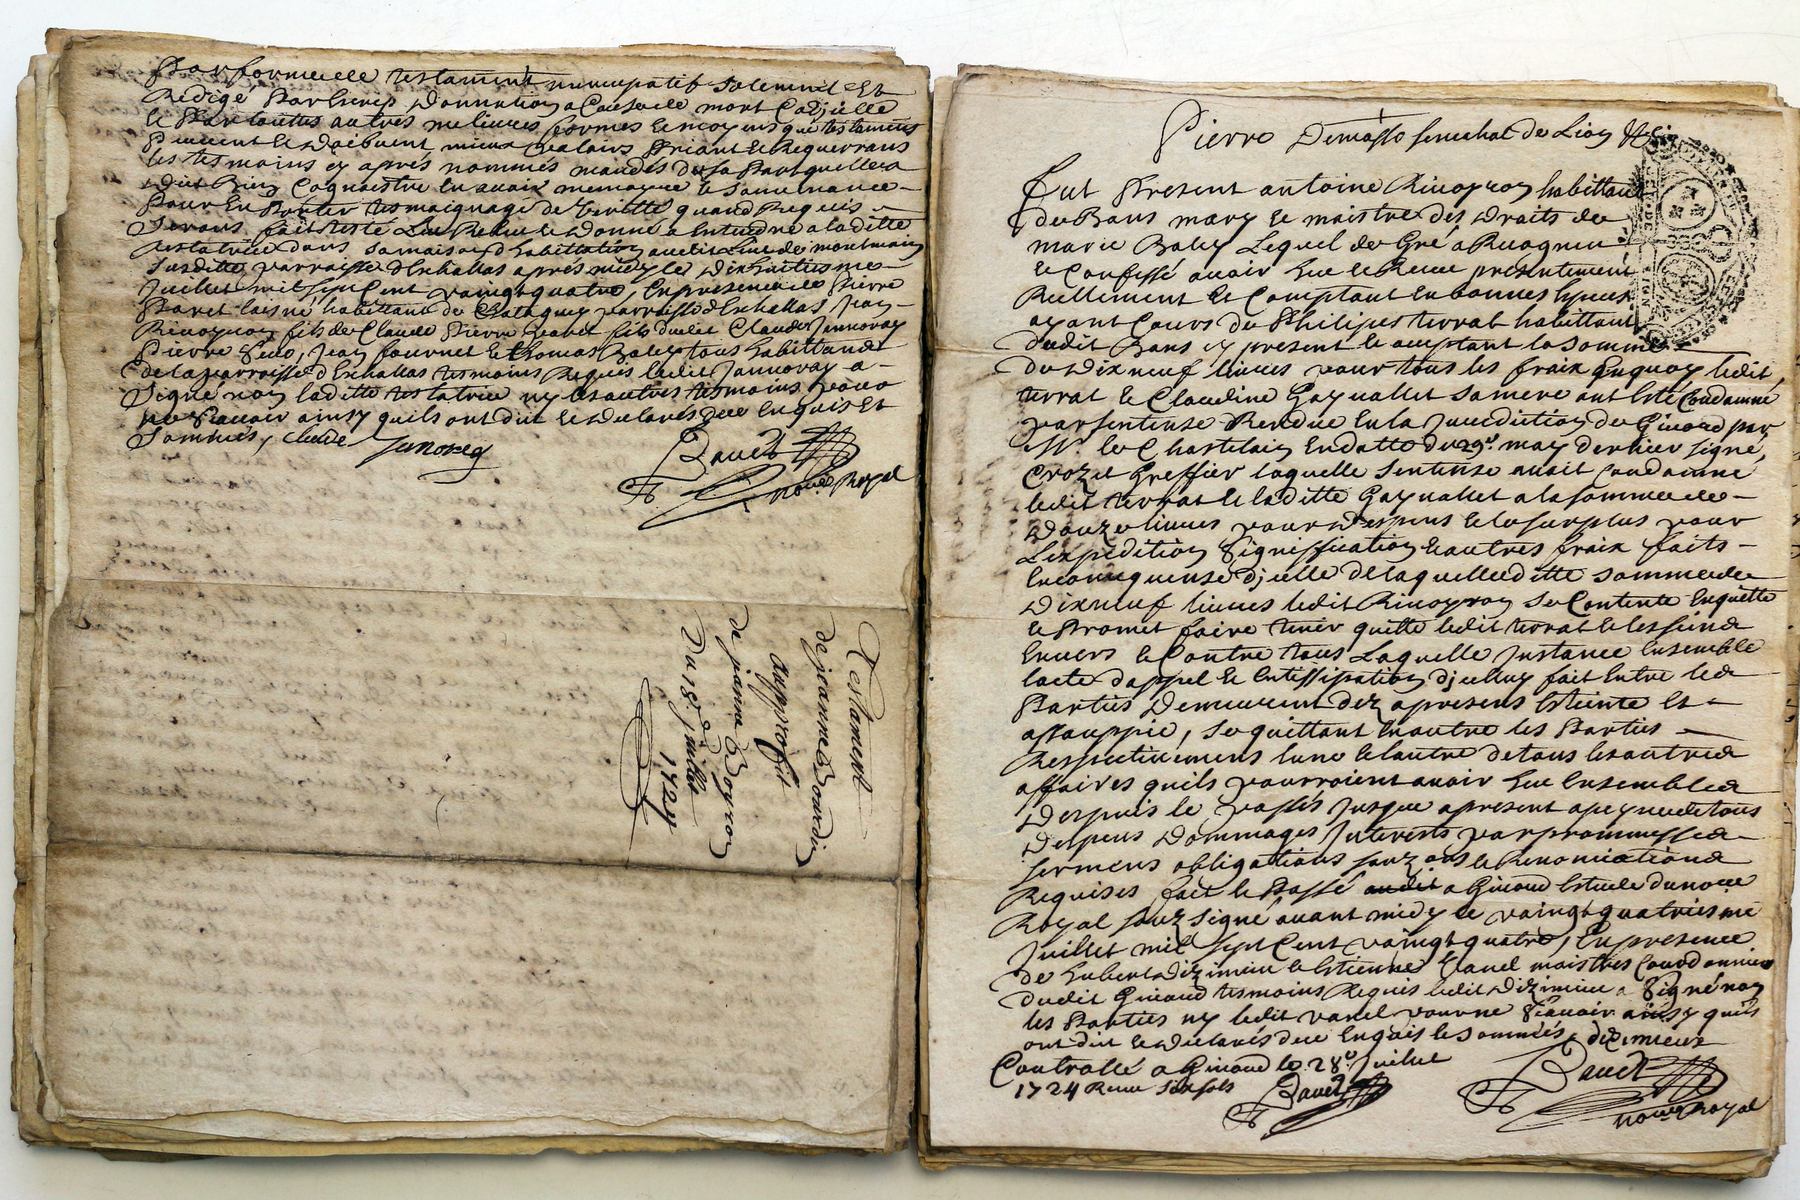 Par forme de testament nuncupatif solemnel Et
Redigé Par Escrip donnation a Cause de mort Codicille
Et Par toutes autres meilieures formes Et moyens que testaments
Peuvent Et doibvent mieux valoir Priant Et Requerrans
les tesmoins cy aprés nommés mandés de sa Part quelle a
dit Bien Cognaistre En avoir memoyre Et souvenance
Pour En Porter tesmoignage de Veritté quand Requis
Seront fait Testé Leu Releu Et donné a Entendre a la ditte
testatrice dans sa maison d'habittation audit Lieu de montmain
Susditte parroisse d'Exhallas aprés midy le dixhuitiesme
Juillet mil sept Cent vaingt quatre, En presence de Pierre
laisné habittant de parroisse d'Exhallas Jean
fils de Claude Pierre fils dudit Claude Jannoray
Pierre Jean fournel Et thomas Baley tous habittants
de la parroisse d'Exhallas tesmoins Requis ledit Jannoray a
Signé non laditte testatrice ny les autres tesmoins pour
ne Scavoir ainsy quils ont dit Et declarés de ce Enquis Et
Sommés, Claude Janoray
Bauet
no.re Royal
Testament
de jeanne Bourdin
au proffit
de jeanne Boyron
Du 18.e Juillet
1724
Pierre Demasso senechal de Lion &c.
Fut Present antoine Rivoyron habittant
de Bans mary Et maistre des Droits de
marie Baley Lequel de Gré a Recogneu
Et Confessé avoir Eue Et Receu presentement
Reellement Et Comptant En bonnes Especes
ayant Cours de Philipes terrat habittant
dudit Bans cy present Et acceptant la somme
de dix neuf livres pour tous les fraix Enquoy ledit
terrat Et Claudine Gayuallet sa mere ont Esté Condamné
par sentense Rendue En la Juridiction de Givord par
M.r le Chastelain En datte du 29.e may dernier signé,
Crozet Greffier laquelle sentense avait Condamne
ledit terrat Et laditte Gayuallet a la somme de
douze livres pour despens Et le surplus pour
L'expedition Signiffication Et autres fraix faits
En consequense d'jcelle de laquelle ditte somme de
dix neuf livres ledit Rivoyron se Contente En quitte
Et Promet faire tenir quitte ledit terrat Et les siens
Envers Et Contre tous Laquelle Instance Ensemble
lacte d'appel Et d'jceluy fait Entre les
Parties Demeurent dez a presens Esteinte Et
assouppie, se quittant En outre les Parties
Respectivement l'une Et l'autre de tous les autres
affaires quils pourroient avoir Eue Ensembles
Despuis le Passés Jusque a present a peyne de tous
Despens Dommages Interests par prommesses
sermens obligations Et Renonciations
Requises fait Et Passé a Givord Estude du no.re
Royal souz signé avant midy le vaingt quatriesme
Juillet mil sept Cent vaingt quatre, En presence
de hubert dizimieu Et Estienne Vanel maistres Courdonnier
dudit Givord tesmoins Requis ledit dizimieu a Signé non
les Parties ny ledit vanel pour ne Scavoir ainsy quils
ont dit Et declarés de ce Enquis Et sommés, dizimieux
Controllé a Givord le 28.e Juillet
1724 Receu Six sols Bauet
Bauet
no.re Royal